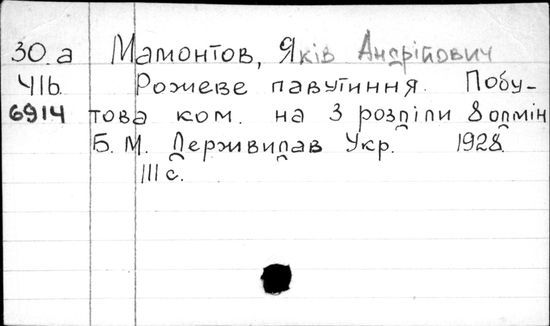 30.а Мамонтов, Яків Андрійович
416. Рожеве павутиння. Побу-
6914 това ком. на 3 розділи 8 одмін
Б. М. Держвидав Укр. 1928.
111 с.